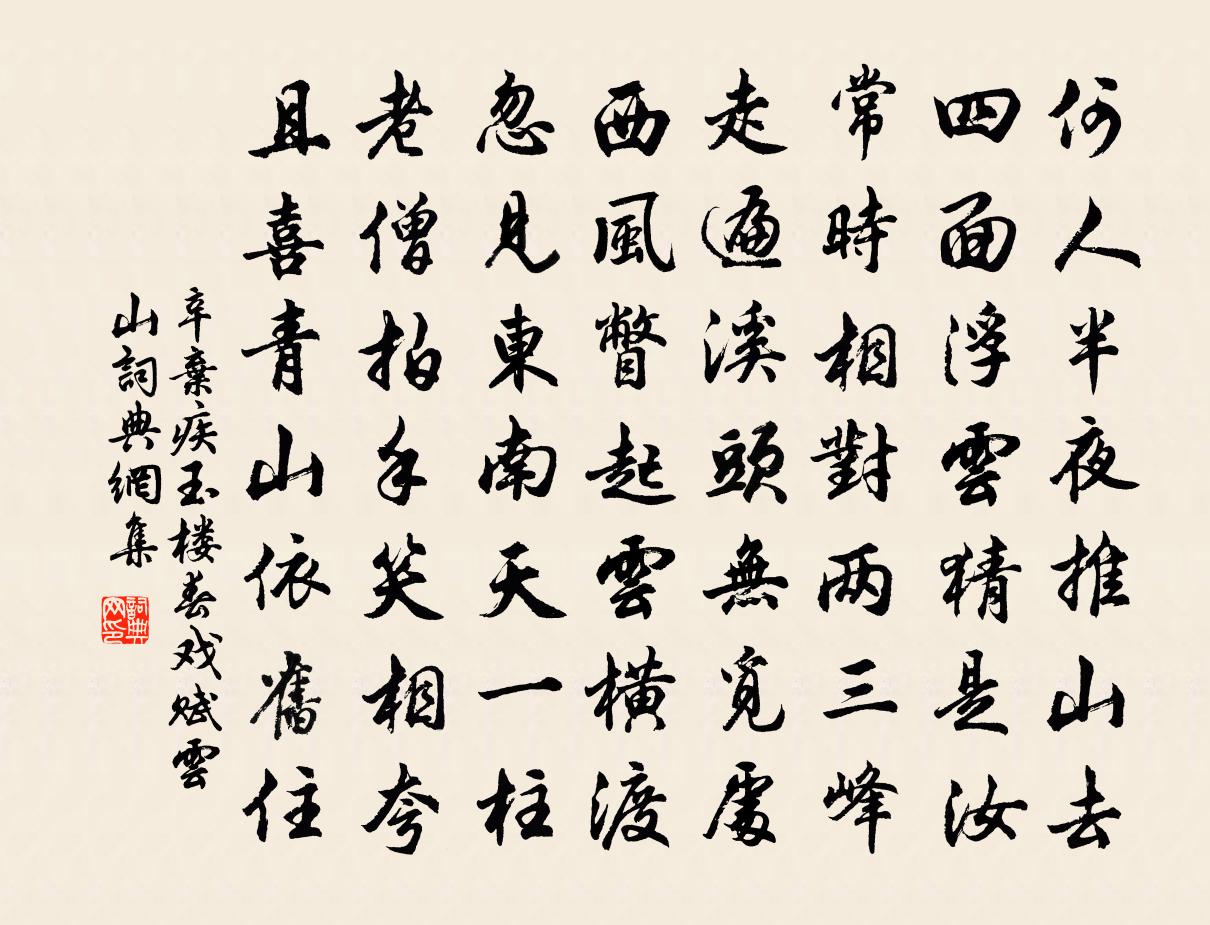 何人半夜推山去
四面浮雲猜是汝
常時相對两三峰
走遍溪頭無覓處
西風瞥起雲橫渡
忽見東南天一柱
老僧拍手笑相夸
且喜青山依舊住
辛棄疾玉楼春戏赋雲
山詞典網集
詞典
网印